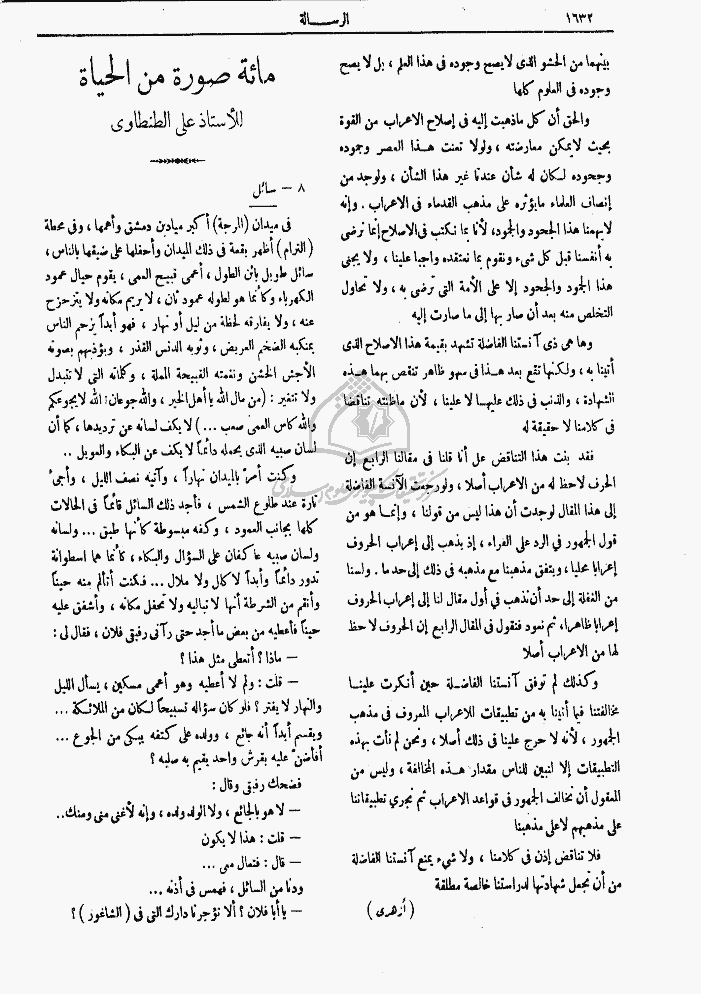 ١٦٣٢
الرســالة
بينهما من الحشو الذى لايصح وجوده فى هذا العلم ، بل لا يصح
وجوده فى العلوم كلها
والحق أن كل ماذهبت إليه فى إصلاح الاعراب من القوة
بحيث لايمكن معارضته ، ولولا تعنت هــذا العصر وجموده
وجحوده لكان له شأن عندنا غير هذا الشأن ، ولوجد من
إنصاف العلماء مايؤثره على مذهب القدماء فى الاعراب . وإنه
لايهمنا هذا الجحود والجمود، لأنا بما نكتب فى الاصلاح إنما نرضى
به أنفسنا قبل كل شىء ونقوم بما نعتقده واجبا علينا ، ولا يجنى
هذا الجمود والجحود إلا على الأمة التى ترضى به ، ولا تحاول
التخلص منه بعد أن صار بها إلى ما صارت إليه
وها هى ذى آنستنا الفاضلة تشهد بقيمة هذا الاصلاح الذى
أتينا به ، ولكنها تقع بعد هــذا فى سهو ظاهر تنقص بهما هــذه
الشهادة ، والذنب فى ذلك عليهــا لا علينا ، لأن ماظنته تناقضا
فى كلامنا لا حقيقة له
فقد بنت هذا التناقض على أنا قلنا فى مقالنا الرابع إن
الحرف لاحظ له من الاعراب أصلا ، ولورجعت الآنسة الفاضلة
إلى هذا المقال لوجدت أن هذا ليس من قولنا ، وإنمــا هو من
قول الجمهور فى الرد على الفراء ، إذ يذهب إلى إعراب الحروف
إعرابا محليا ، ويتفق مذهبنا مع مذهبه فى ذلك إلى حد ما . ولسنا
من الغفلة إلى حد أن نذهب فى أول مقال لنا إلى إعراب الحروف
إعرابا ظاهرا، ثم نعود فنقول فى المقال الرابع إن الحروف لا حظ
لها من الاعراب أصلا
وكذلك لم توفق آنستنا الفاضــلة حين أنكرت علينــا
مخالفتنا فيما أتينا به من تطبيقات للاعراب المعروف فى مذهب
الجمهور ، لأنه لا حرج علينا فى ذلك أصلا ، ونحن لم نأت بهذه
التطبيقات إلا لنبين للناس مقدار هــذه المخالفة ، وليس من
المعقول أن نخالف الجمهور فى قواعد الاعراب ثم نجرى تطبيقاتنا
على مذهبهم لاعلى مذهبنا
فلا تناقض إذن فى كلامنا ، ولا شىء يمنع آنستنا الفاضلة
من أن تجعل شهادتها لدراستنا خالصة مطلقة
( أزهرى )
مائة صورة من الحياة
للأستاذ على الطنطاوى
٨ — سائل
فى ميدان (المرجة) أكبر ميادين دمشق وأهمها ، وفى محطة
( الترام ) أظهر بقعة فى ذلك الميدان وأحفلها على ضيقها بالناس ،
سائل طويل بائن الطول ، أعمى قبيح العمى ، يقوم حيال عمود
الكهرباء وكأنما هو لطوله عمود ثان ، لا يريم مكانه ولا يتزحزح
عنه ، ولا يفارقه لحظة من ليل أو نهار ، فهو أبداً يزحم الناس
بمنكبه الضخم العريض ، وثوبه الدنس القذر ، ويؤذيهم بصوته
الأجش الخشن ونغمته القبيحة المملة ، وكلماته التى لا تتبدل
ولا تتغير : (من مال الله يا أهل الخير ، والله جوعان؛ الله لايجوعكم
والله كاس العمى صعب ... ) لا يكف لسانه عن ترديدها ، كما أن
لسان صبيه الذى يحمله دائماً لا يكف عن البكاء والعويل ..
وكنت أمرّ بالميدان نهاراً ، وآتيه نصف الليل ، وأجىء
تارة عند طلوع الشمس ، فأجد ذلك السائل قائماً فى الحالات
كلها بجانب العمود ، وكفه مبسوطة كأنها طبق ... ولسانه
ولسان صبيه عاكفان على السؤال والبكاء ، كأنما هما اسطوانة
تدور دائماً وأبداً لا كلال ولا ملال ... فكنت أتألم منه حيناً
وأنقم من الشرطة أنها لا تباليه ولا تحفل مكانه ، وأشفق عليه
حيناً فأعطيه من بعض ما أجد حتى رآنى رفيقى فلان ، فقال لى :
— ماذا ؟ أتعطى مثل هذا ؟
— قلت : ولم لا أعطيه وهو أعمى مسكين ، يسأل الليل
والنهار لا يفتر ؟ فلو كان سؤاله تسبيحاً لكان من الملائكة ...
ويقسم أبداً أنه جائع ، وولده على كتفه يبكى من الجوع ...
أفأضنّ عليه بقرش واحد يقيم به صلبه ؟
فضحك رفيقى وقال :
— لا هو بالجائع ، ولا الولد ولده ، وإنه لأغنى منى ومنك..
— قلت : هذا لا يكون
— قال : فتعال معى ...
ودنا من السائل ، فهمس فى أذنه ...
— يا أبا فلان ؟ ألا تؤجرنا دارك التى فى ( الشاغور ) ؟